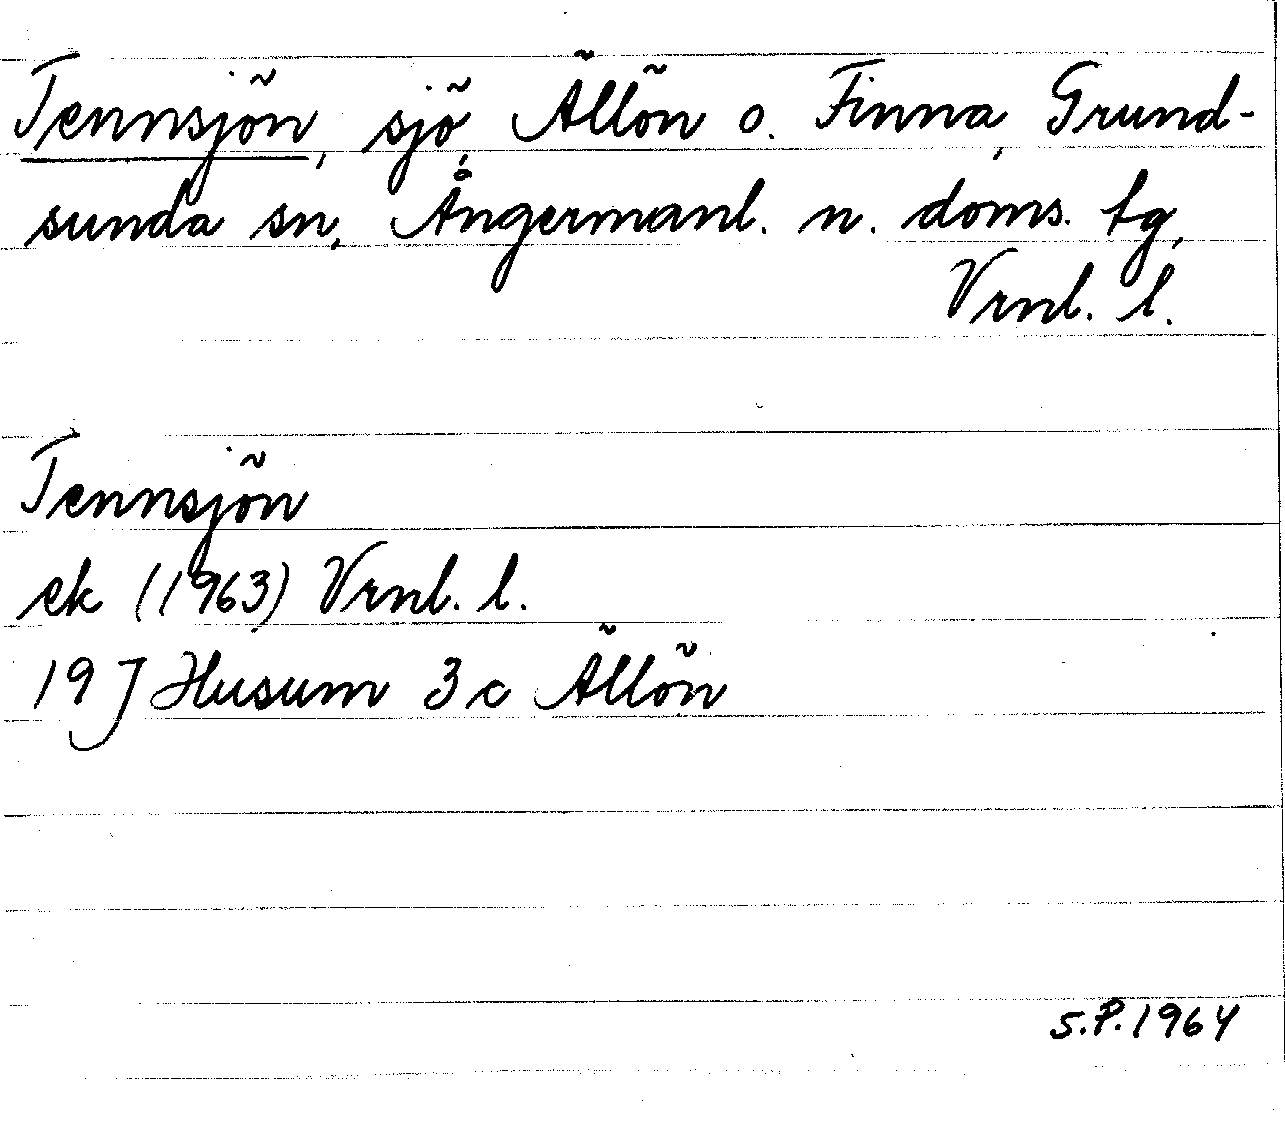 Tennsjön, sjö, Ällön o. Finna, Grund-
sunda sn, Ångermanl. n. doms. tg,
Vrnl. l.
Tennsjön
ek (1963) Vrnl. l.
19 J Husum 3 c Ällön
S.P. 1964